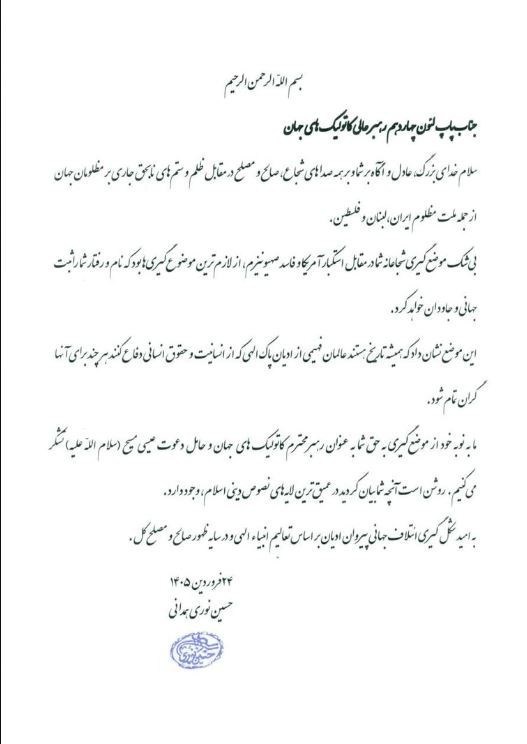 بسم الله الرحمن الرحیم
جناب پاپ لئون چهاردهم رهبر عالی کاتولیک های جهان
سلام خدای بزرگ، عادل و آگاه بر شما و بر همه صداهای شجاع، صالح و مصلح در مقابل ظلم و ستم های نابحق جاری بر مظلومان جهان
از جمله ملت مظلوم ایران، لبنان و فلسطین.
بی شک موضع گیری شجاعانه شما در مقابل استکبار آمریکا و فاسد صهیونیزم، از لازم ترین موضوع گیری ها بود که نام و رفتار شما را ثبت
جهانی و جاودان خواهد کرد.
این موضع نشان داد که همیشه تاریخ هستند عالمان فهیمی از ادیان پاک الهی که از انسانیت و حقوق انسانی دفاع کنند هر چند برای آنها
گران تمام شود.
ما به نوبه خود از موضع گیری به حق شما به عنوان رهبر محترم کاتولیک های جهان و حامل دعوت عیسی مسیح (سلام الله علیه) تشکر
می کنیم. روشن است آنچه شما بیان کردید در عمیق ترین لایه های نصوص دینی اسلام، وجود دارد.
به امید شکل گیری ائتلاف جهانی پیروان ادیان بر اساس تعالیم انبیاء الهی و در سایه ظهور صالح و مصلح کل.
۲۴ فروردین ۱۴۰۵
حسین نوری همدانی